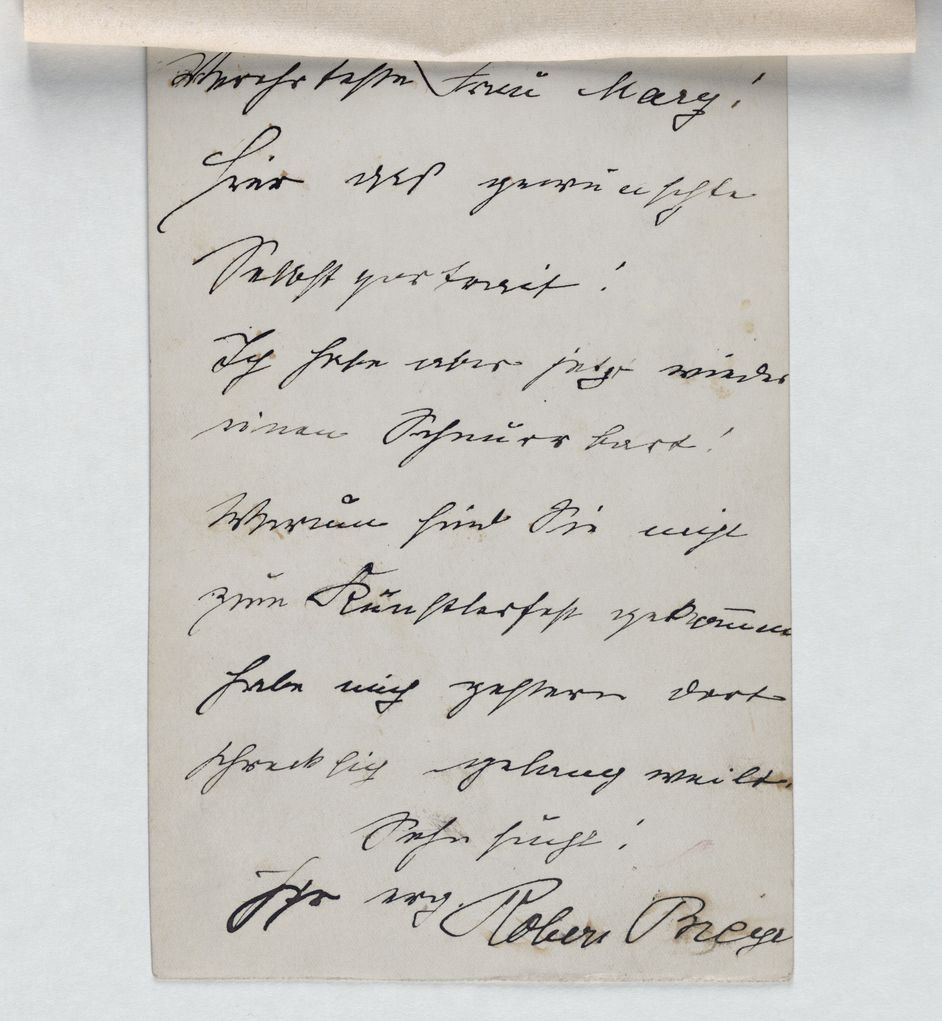 Verehrteste Frau Mary!
Hier das gewünschte
Selbstportrait!
Ich habe aber jetzt wieder
einen Schnurrbart!
Warum sind Sie nicht
zum Künstlerfest gekommen
habe mich gestern dort
schrecklich gelangweilt.
Sehnsucht!
Ihr erg. Robert